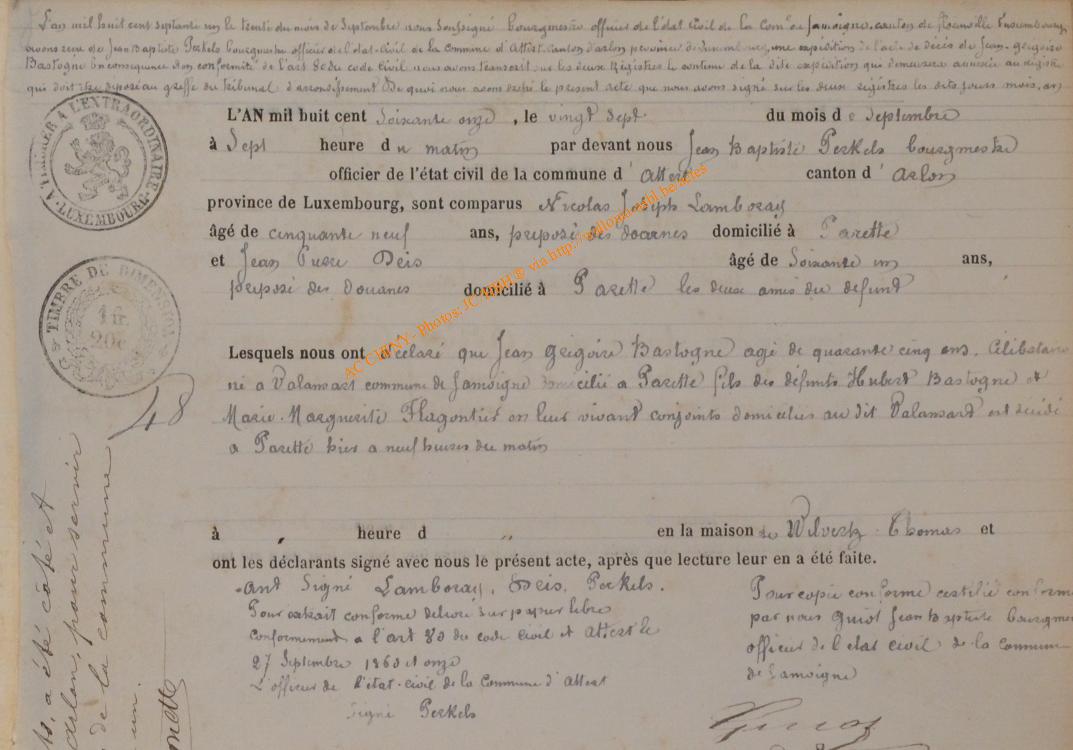 L'an mil huit cent septante un le trente du mois de Septembre nous soussigné bourgmestre officier de l'état civil de la Comne de Jamoigne canton de Florenville Luxembourg
avons reçu de Jean Baptiste Perkels bourgmestre officier de l'état-Civil de la commune d'Attert canton d'arlon province de Luxembourg, une expédition de l'acte de décès de Jean-Grégoire
Bastogne En conséquence et en conformité de l'art 80 du code Civil nous avons transcrit sur les deux Régistres le contenu de la dite expédition qui demeurera annexée au régistre
qui doit être déposé au greffe du Tribunal d'arrondissement De quoi nous avons dressé le présent acte que nous avons signé sur les deux régistres les dits jours mois, an
A TIMBRER A L'EXTRAORDINAIRE
LUXEMBOURG
L'AN mil huit cent Soixante onze, le vingt Sept du mois de Septembre
à Sept heure du matin par devant nous Jean Baptiste Perkels bourgmestre
officier de l'état civil de la commune d'Attert canton d'Arlon
province de Luxembourg, sont comparus Nicolas Joseph Lamboray
âgé de cinquante neuf ans, préposé des douanes domicilié à Parette
et Jean Pierre Deis âgé de Soixante un ans,
préposé des Douanes domicilié à Parette les deux amis du défunt
TIMBRE DE DIMENSION
1 fr.
20c
Lesquels nous ont déclaré que Jean Grégoire Bastogne agé de quarante cinq ans. Célibataire
né a Valansart commune de Jamoigne domicilié a Parette fils des défunts Hubert Bastogne et
Marie-Marguerite Flagontier en leur vivant conjoints domiciliés au dit Valansart est décédé
a Parette hier a neuf heures du matin
48
à heure d en la maison de Wilvertz-Thomas et
ont les déclarants signé avec nous le présent acte, après que lecture leur en a été faite.
Ont Signé Lamboray, Deis, Perkels.
Pour extrait conforme délivré sur papier libre
conformément a l'art 80 du code Civil et Attert le
27 Septembre 1860 et onze
L'officier de l'état-civil de la Commune d'Attert
Signé Perkels
Pour copie conforme certifié conforme
par nous Guiot Jean Baptiste bourgmestre
officier de l'état civil de la commune
de Jamoigne
a été côté et
arlon, pour servir
de la commune
un.
AC CHINY - Photos: JC via http://www.luxroots.be/actes